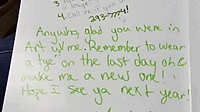 3
4. Call me, Egan
293-7754!
Anywho, glad you were in
Art w/me. Remember to wear
a "tye" on the last day of
make me a new one!
Hope I see ya next year!